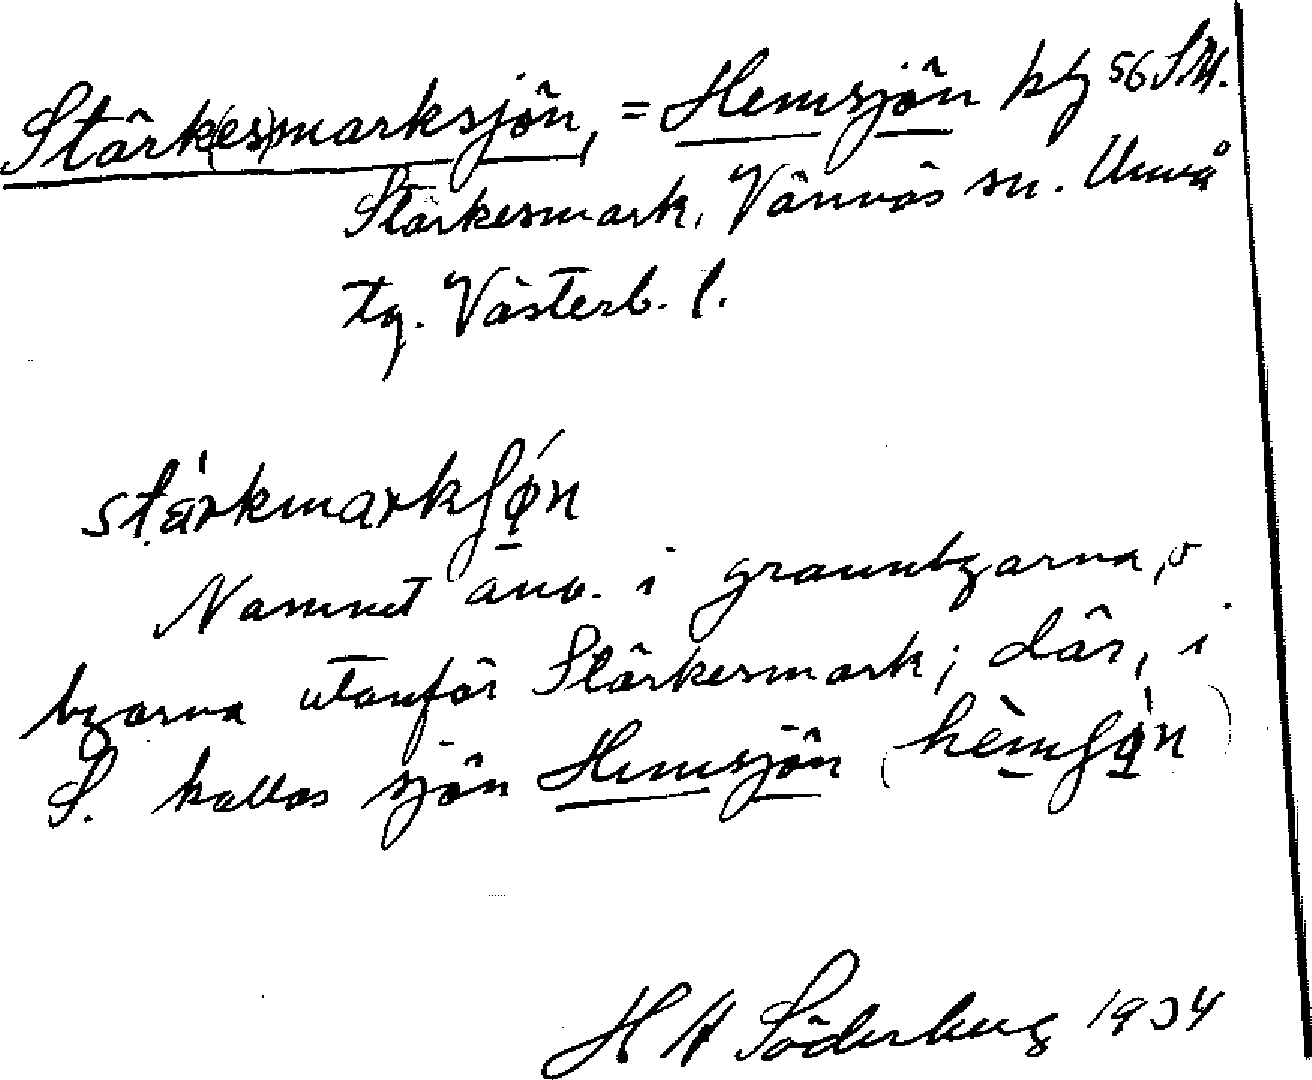 Stärk(es)marksjön, = Hemsjön kbl 56 SM.
Stärkesmark, Vännäs sn. Umeå
tg. Västerb. l.
stärkmarkʃøn
Namnet anv. i grannbyarna, o
byarna utanför Stärkesmark; där, i
S. kallas sjön Hemsjön (hèmʃø̀n)
H A Söderberg 1934